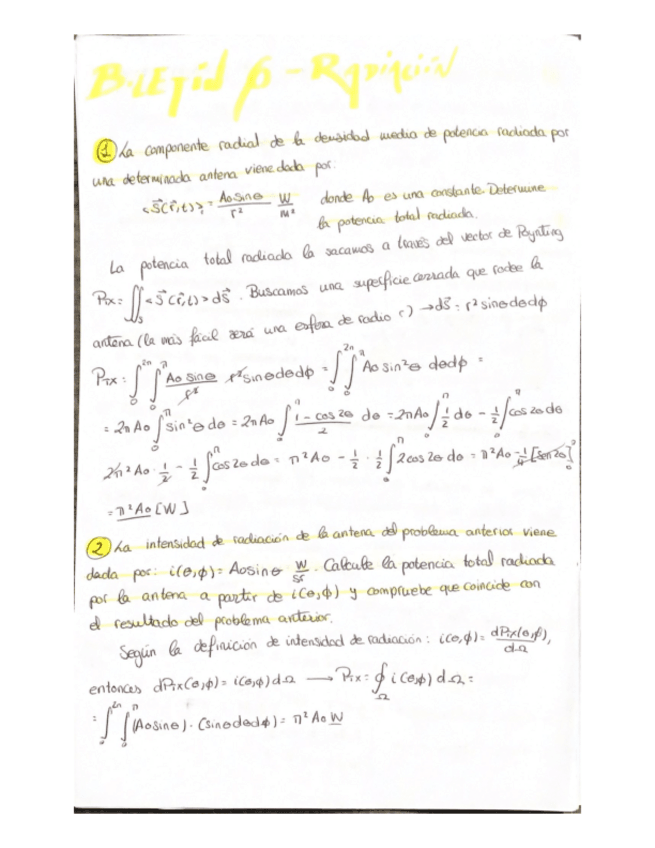 BOLETÍN 6 - RADIACIÓN
① La componente radial de la densidad media de potencia radiada por
una determinada antena viene dada por:
<S⃗(r⃗,t)>r = Ao sinθ / r² W/m² donde Ao es una constante. Determine
la potencia total radiada.
La potencia total radiada la sacamos a través del vector de Poynting
PTX = ∬s <S⃗(r⃗,t)> dS⃗. Buscamos una superficie cerrada que rodee la
antena (la más fácil será una esfera de radio r) → dS⃗ = r² sinθ dθ dφ
PTX = ∫₀^2π ∫₀^π Ao sinθ / r² r² sinθ dθ dφ = ∫₀^2π ∫₀^π Ao sin²θ dθ dφ =
= 2π Ao ∫₀^π sin²θ dθ = 2π Ao ∫₀^π (1 - cos 2θ)/2 dθ = 2π Ao ∫₀^π 1/2 dθ - 1/2 ∫₀^π cos 2θ dθ
2π² Ao · 1/2 - 1/2 ∫₀^π cos 2θ dθ = π² Ao - 1/2 · 1/2 ∫₀^π 2 cos 2θ dθ = π² Ao - 1/4 [sen 2θ]₀^π
= π² Ao [W]
② La intensidad de radiación de la antena del problema anterior viene
dada por: i(θ,φ) = Ao sinθ W/sr. Calcule la potencia total radiada
por la antena a partir de i(θ,φ) y compruebe que coincide con
el resultado del problema anterior.
Según la definición de intensidad de radiación: i(θ,φ) = dPTX(θ,φ)/dΩ,
entonces dPTX(θ,φ) = i(θ,φ) dΩ → PTX = ∮Ω i(θ,φ) dΩ =
= ∫₀^2π ∫₀^π (Ao sinθ) · (sinθ dθ dφ) = π² Ao W